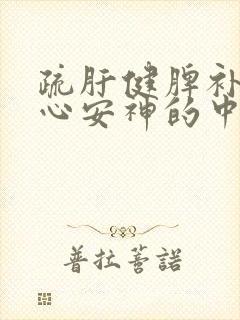 疏肝健脾补
心安神的中
普拉蒈諾